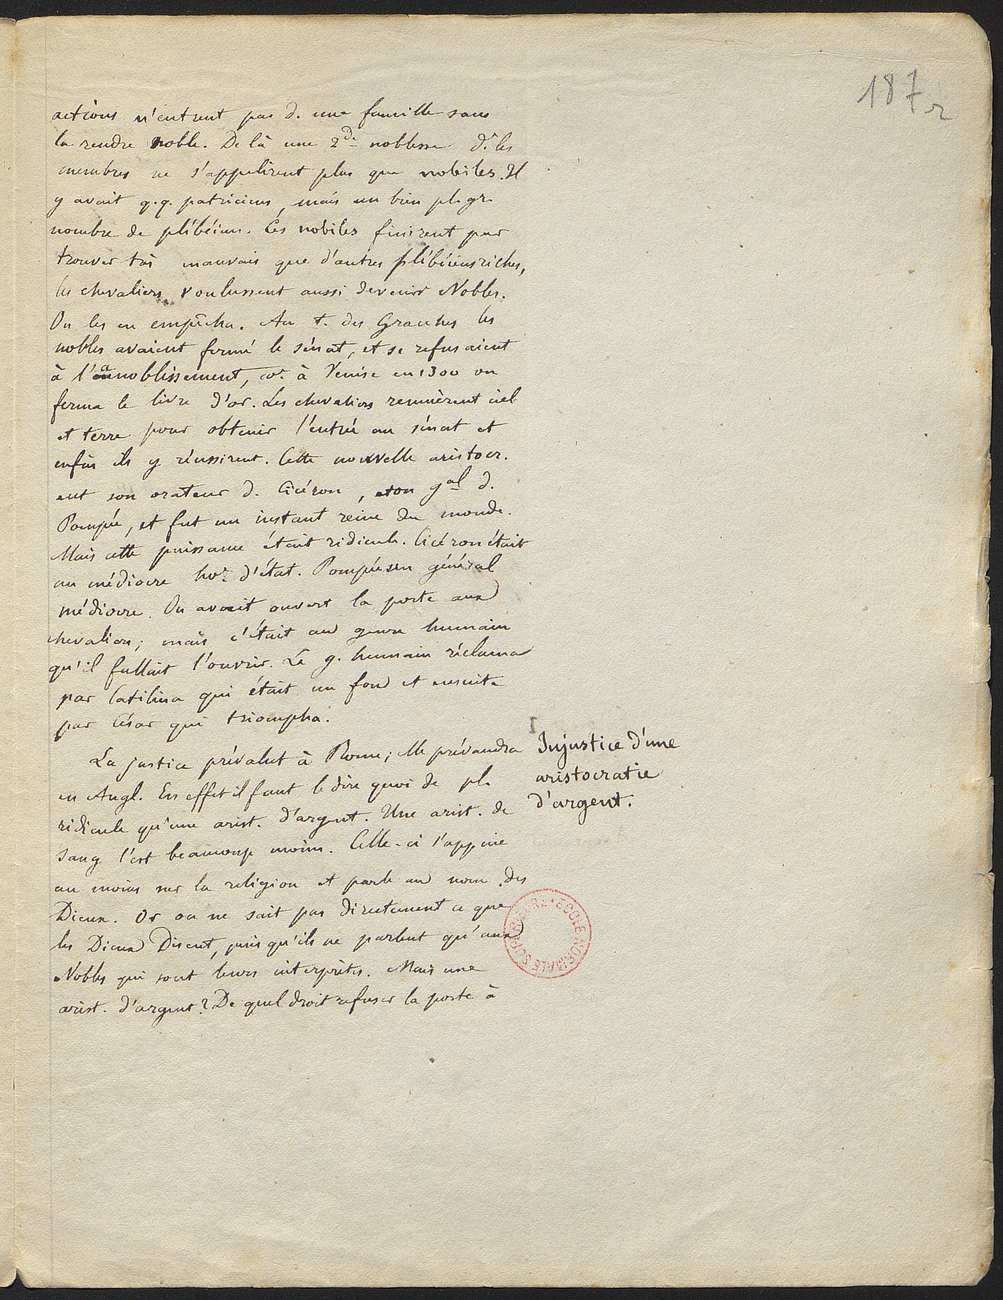 187 r
actions n'entrent pas d. une famille sans
la rendre noble. De là une 2de noblesse dt les
membres ne s'appelèrent plus que nobiles. Il
y avait q.q. patriciens, mais un bien pl. gr.
nombre de plébéiens. Ces nobiles finirent par
trouver très mauvais que d'autres plébéiens riches,
les chevaliers, voulussent aussi devenir Nobles.
On les en empêcha. Au t. des Gracches les
nobles avaient fermé le sénat, et se refusaient
à l'anoblissement, co. à Venise en 1300 on
ferma le livre d'or. Les chevaliers remuèrent ciel
et terre pour obtenir l'entrée au sénat et
enfin ils y réussirent. Cette nouvelle aristocr.
eut son orateur d. Cicéron, son gal d.
Pompée, et fut un instant reine du monde.
Mais cette puissance était ridicule. Cicéron était
un médiocre ho. d'état. Pompée un général
médiocre. On avait ouvert la porte aux
chevaliers; mais c'était au genre humain
qu'il fallait l'ouvrir. Le g. humain réclama
par Catilina qui était un fou et ensuite
par César qui triompha.
La justice prévalut à Rome; elle prévaudra
en Angl. En effet il faut le dire quoi de pl.
ridicule qu'une arist. d'argent. Une arist. de
sang l'est beaucoup moins. Celle-ci s'appuie
au moins sur la religion et parle au nom des
Dieux. Or on ne sait pas directement ce que
les Dieux disent, puisqu'ils ne parlent qu'aux
Nobles qui sont leurs interprètes. Mais une
arist. d'argent? De quel droit refuser la porte à
Injustice d'une
aristocratie
d'argent.
ECOLE NORMALE SUPERIEURE